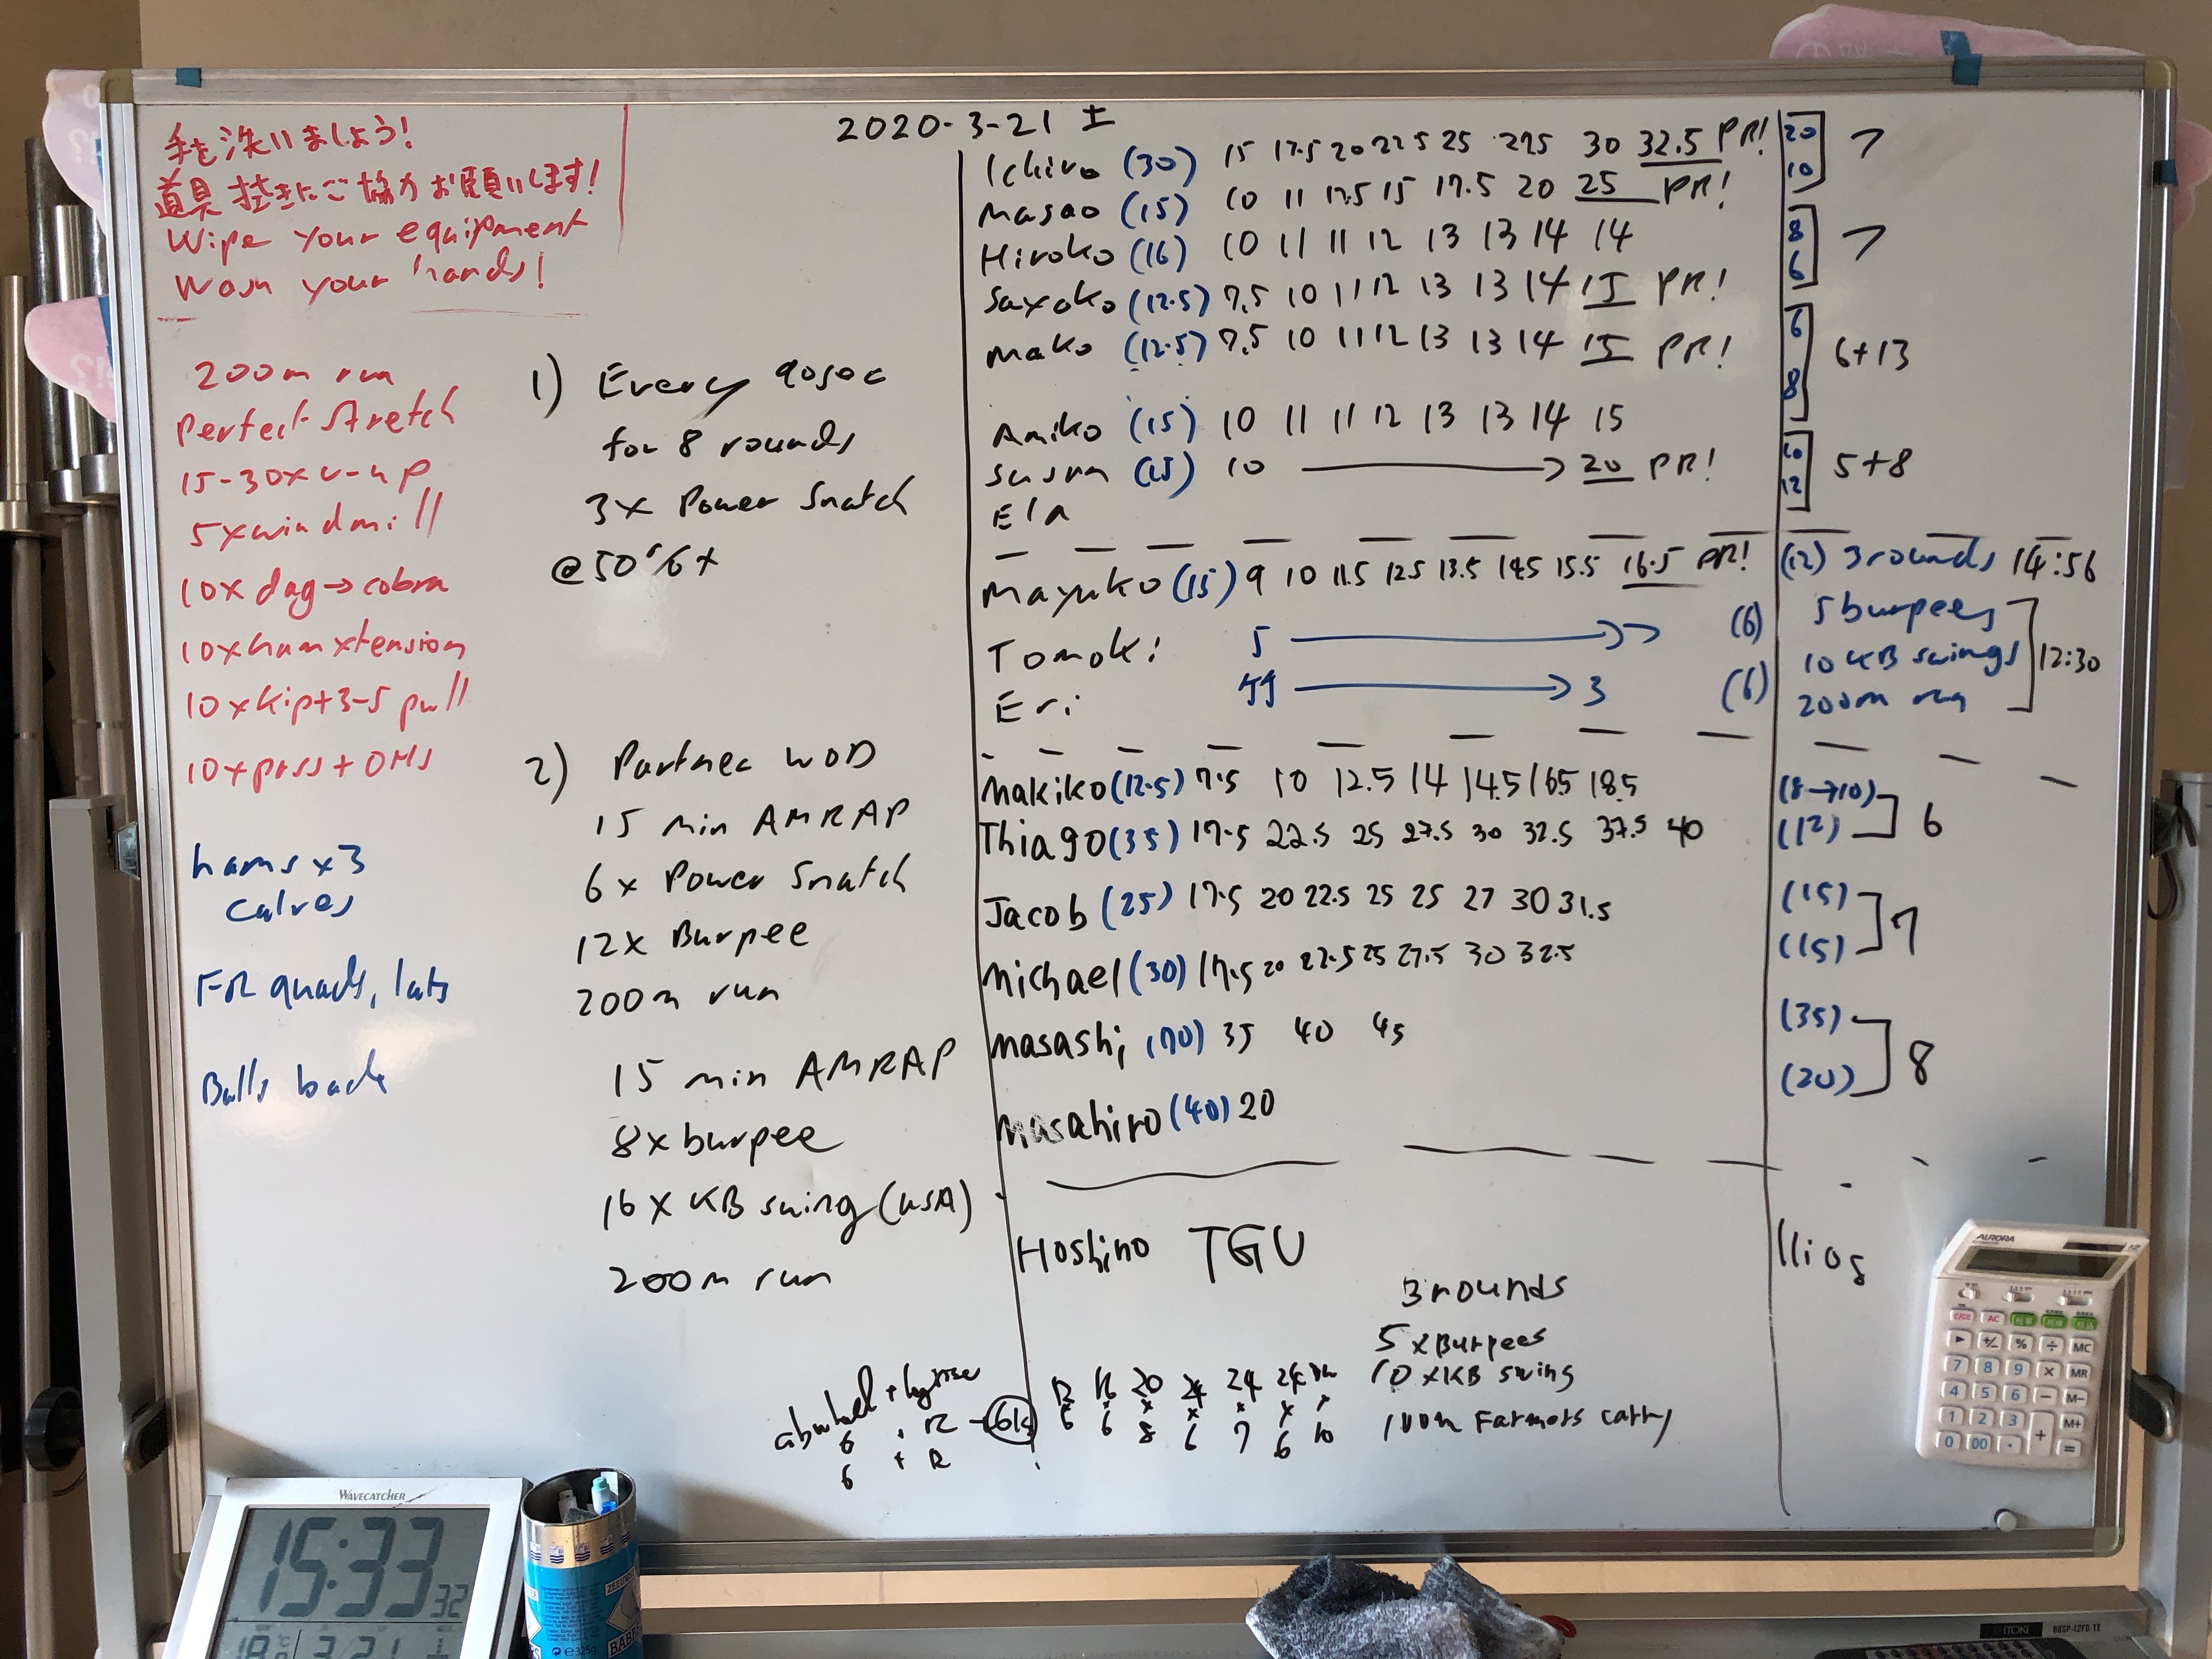 2020-3-21 土
手を洗いましょう!
道具拭きにご協力お願いします!
Wipe your equipment
Wash your hands!
200m run
Perfect Stretch
15-30x v-up
5xwindmill
10x dog→cobra
10xhamxtension
10xkip+3-5 pull
10xpass+OHS
hams x3
calves
FR quads, lats
Balls back
1) Every 90sec
for 8 rounds
3x Power Snatch
@50%+
2) Partner WOD
15 min AMRAP
6x Power Snatch
12x Burpee
200m run
15 min AMRAP
8x burpee
16x KB swing (USA)
200m run
Ichiro (30) 15 17.5 20 22.5 25 27.5 30 32.5 PR! 20
Masao (15) 10 11 12.5 15 17.5 20 25 PR! 10 7
Hiroko (16) 10 11 11 12 13 13 14 14 8
Sayoko (12.5) 7.5 10 11 12 13 13 14 15 PR! 6 7
Mako (12.5) 7.5 10 11 12 13 13 14 15 PR! 6
Amiko (15) 10 11 11 12 13 13 14 15 8 6+13
Susan (15) 10 → 20 PR! 10
Ela 12 5+8
Mayuko (15) 9 10 11.5 12.5 13.5 14.5 15.5 16.5 PR! (12) 3rounds 14:56
Tomoki 5 → 7 (6) 5burpees
10 KB swings 12:30
Eri → 3 (6) 200m run
Makiko (12.5) 7.5 10 12.5 14 14.5 16.5 18.5 (8→10)
Thiago (35) 17.5 22.5 25 27.5 30 32.5 37.5 40 (12) 6
Jacob (25) 17.5 20 22.5 25 25 27 30 31.5 (15)
Michael (30) 17.5 20 22.5 25 27.5 30 32.5 (15) 7
Masashi (70) 35 40 45 (35)
Masahiro (40) 20 (20) 8
Hoshino TGU
3rounds
5xBurpees
10xKB swing
100m Farmers carry
12 16 20 24 24 24
x x x x x x x
6 6 8 6 7 6 10
6
6
AURORA
C/CE AC
► +/- % ÷ MC
7 8 9 × MR
4 5 6 − M-
1 2 3 + M+
0 00 · =
WAVECATCHER
15:33 32
3.21
BABE
ITOKI
BBSP-12FD-TE